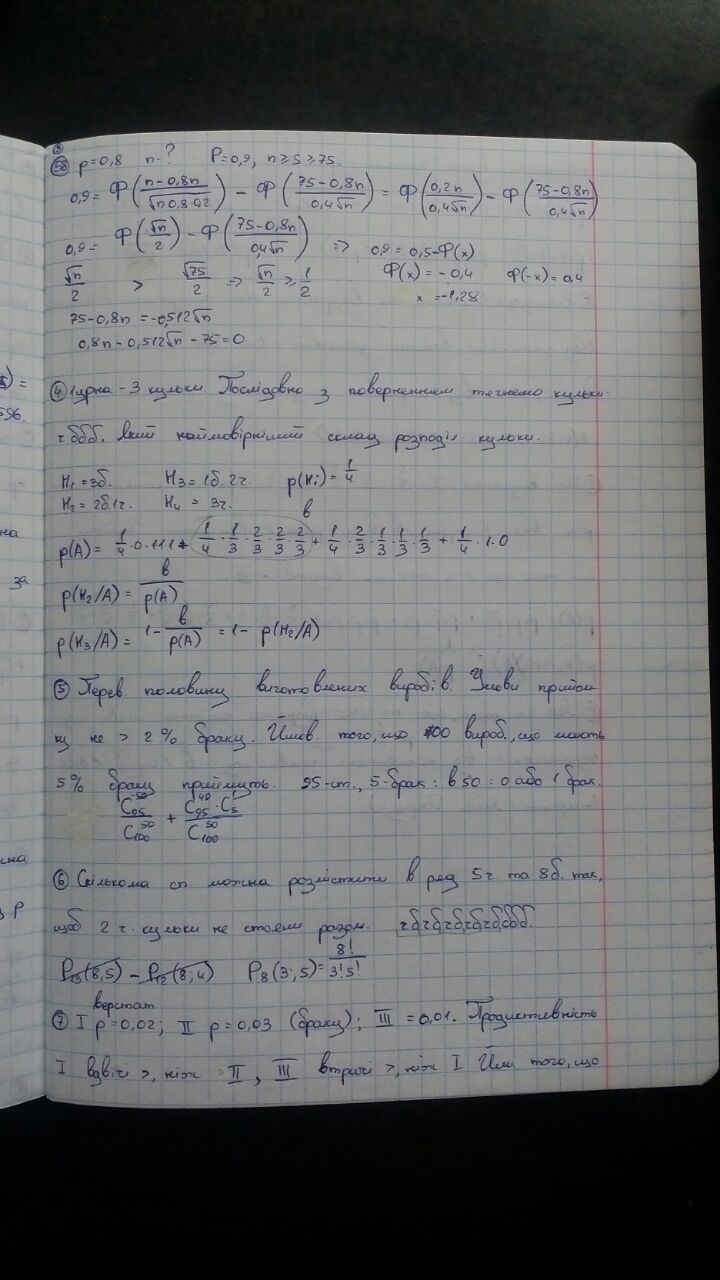 58 p=0,8 n-? P=0,9, n ≥ S ≥ 75.
0,9 = Ф((n-0,8n)/√(n·0,8·0,2)) - Ф((75-0,8n)/(0,4√n)) = Ф(0,2n/(0,4√n)) - Ф((75-0,8n)/(0,4√n))
0,9 = Ф(√n/2) - Ф((75-0,8n)/(0,4√n)) => 0,9 = 0,5-Ф(x)
√n/2 > √75/2 => √n/2 ≥ 1/2 Ф(x) = -0,4 Ф(-x) = 0,4
x = -1,28
75-0,8n = -0,512√n
0,8n - 0,512√n - 75 = 0
④ 1 урна - 3 кульки. Послідовно з поверненням тягнемо кульки:
чббб. Який наймовірніший склад розподіл кульки.
H₁ = 3б. H₃ = 1б. 2ч. p(Hᵢ) = 1/4
H₂ = 2б 1ч. H₄ = 3ч. в
p(A) = 1/4·0·1·1·1 + 1/4·1/3·2/3·2/3·2/3 + 1/4·2/3·1/3·1/3·1/3 + 1/4·1·0
p(H₂/A) = в/p(A)
p(H₃/A) = 1 - в/p(A) = 1 - p(H₂/A)
⑤ Перев. половину виготовлених виробів. Умови прийом
ку не > 2% браку. Ймов. того, що 100 вироб., що мають
5% браку приймуть. 95-ст., 5-брак: в 50: 0 або 1 брак.
C₉₅⁵⁰/C₁₀₀⁵⁰ + C₉₅⁴⁹·C₅¹/C₁₀₀⁵⁰
⑥ Скількома сп. можна розмістити в ряд 5ч. та 8б. так,
щоб 2 ч. кульки не стояли разом. чбчбчбчбчбббб.
P₁₃(8,5) - P₁₂(8;4) P₈(3;5) = 8!/3!5!
верстат
⑦ I p=0,02; II p=0,03 (браку); III = 0,01. Продуктивність
I вдвічі >, ніж II, III втричі >, ніж I. Йм. того, що
) =
596.
на
за
р